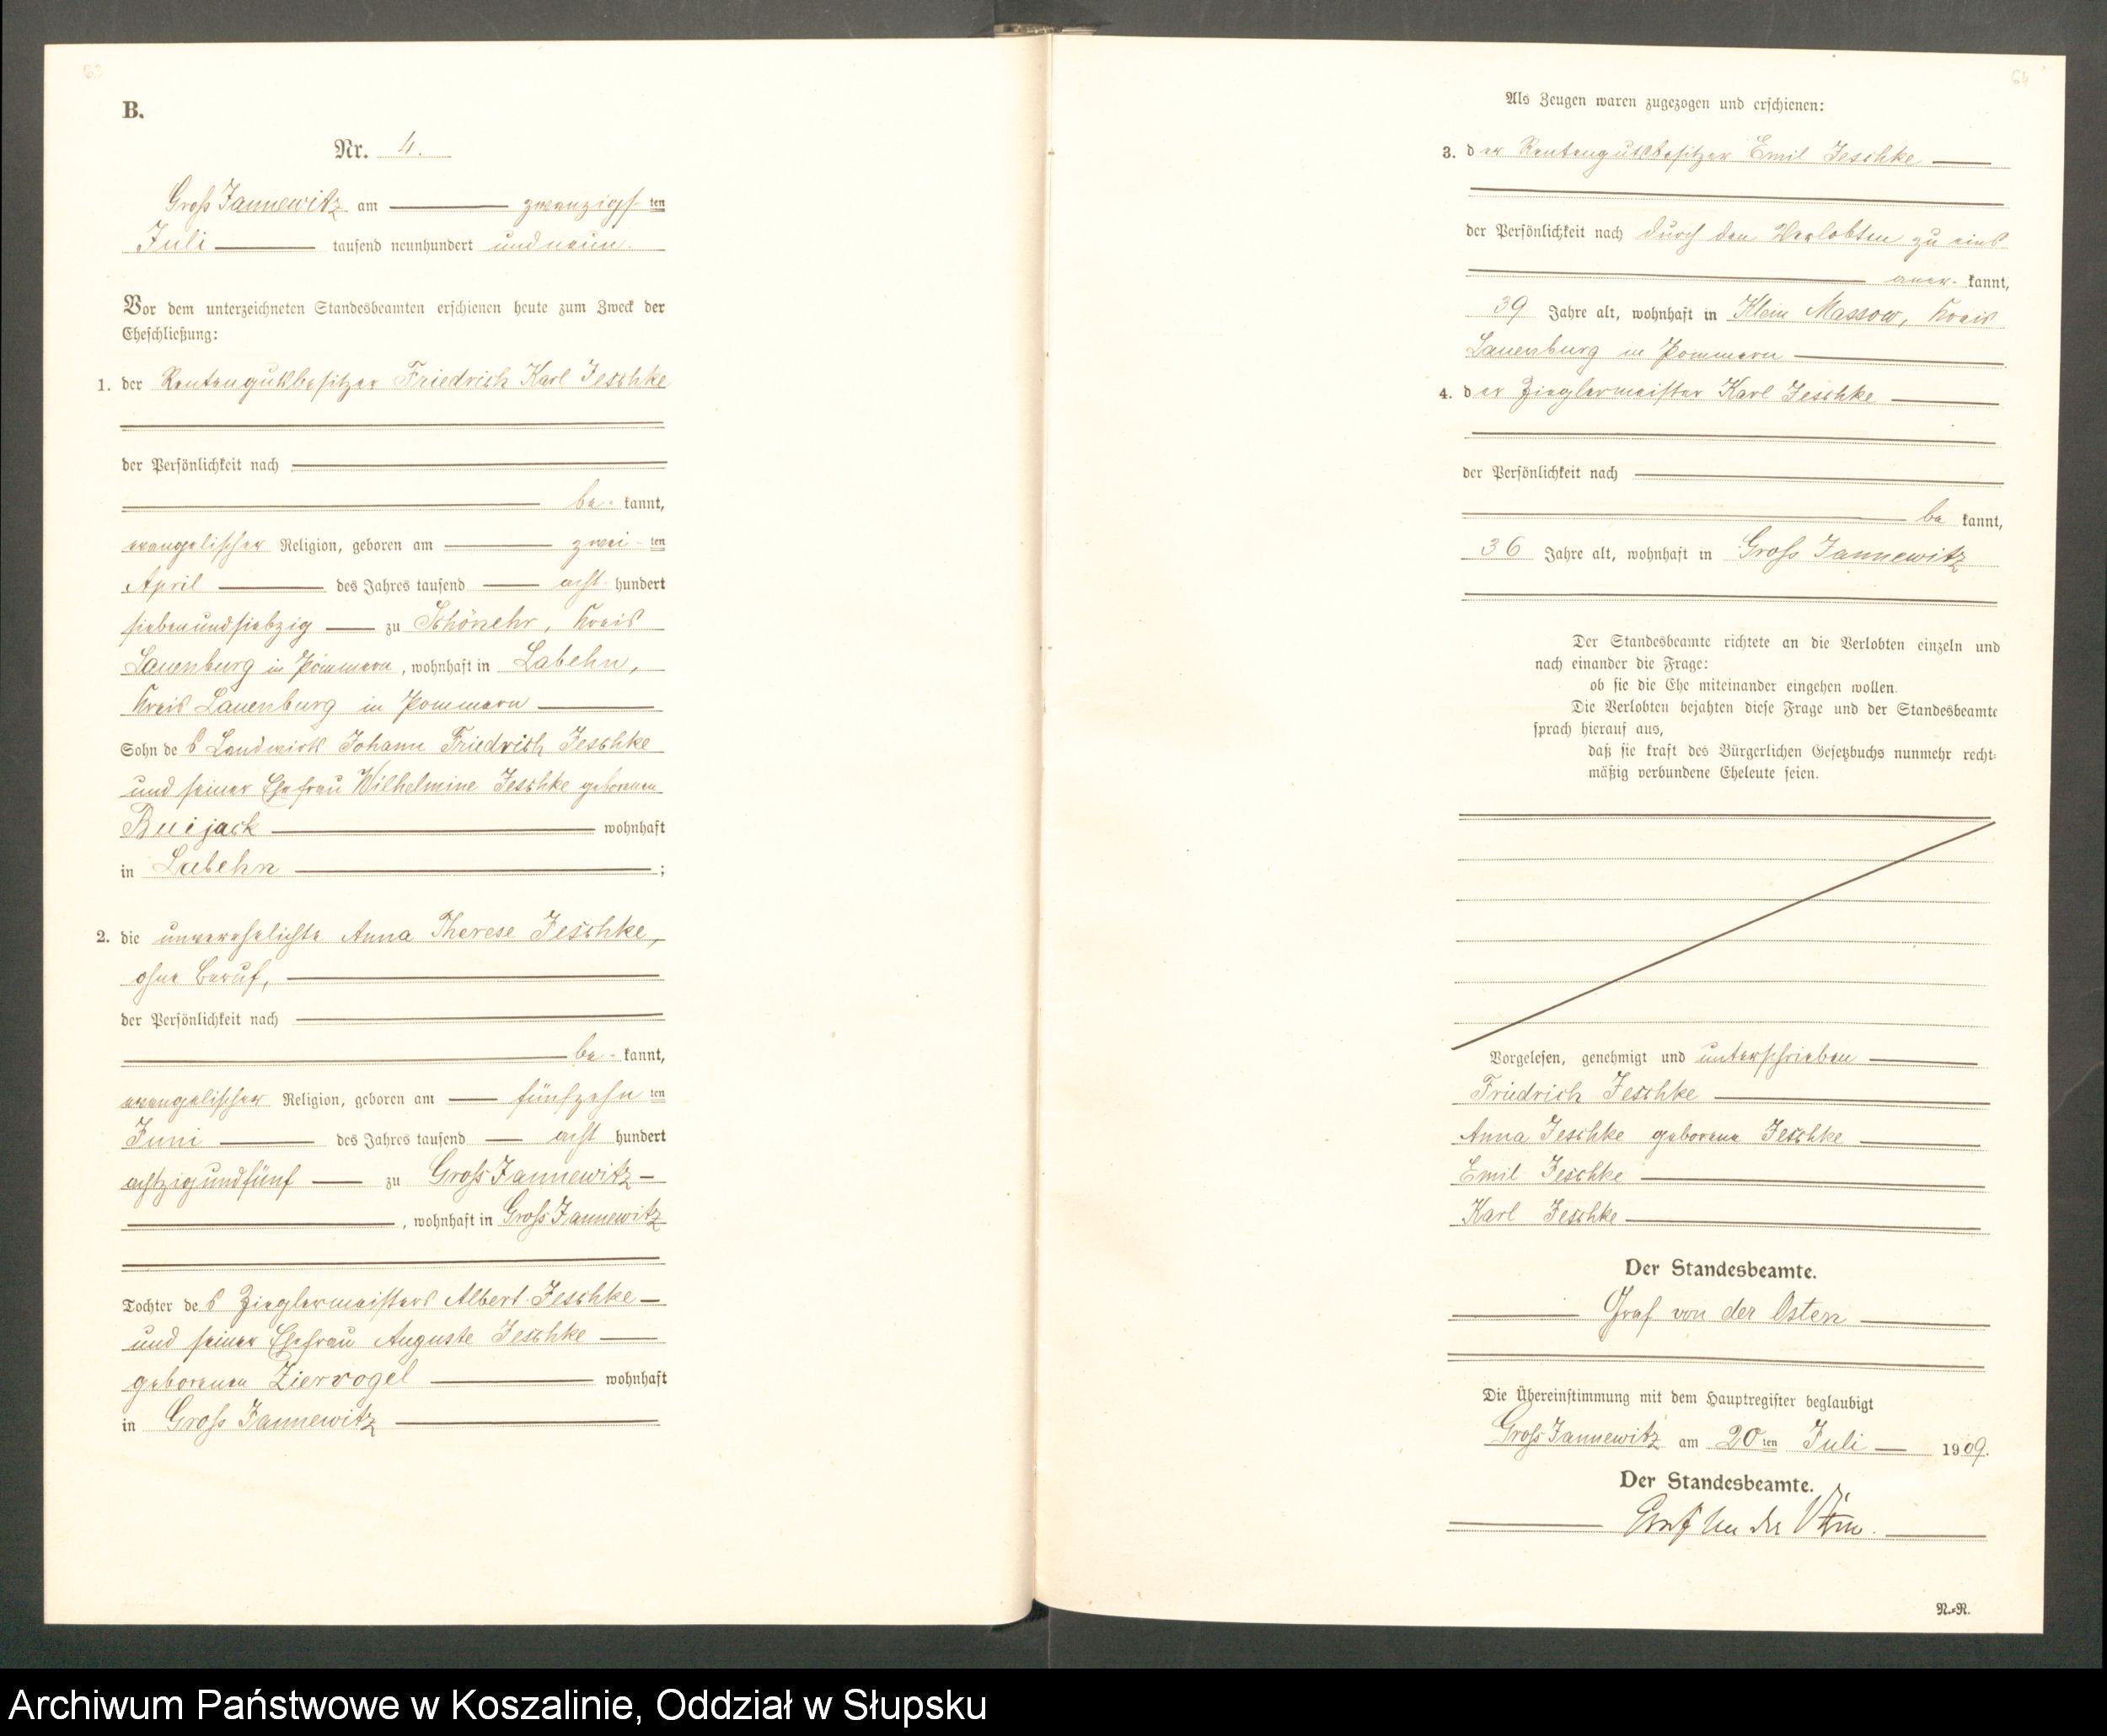 63
B.
Nr. 4.
Groß Jannewitz am zwanzigsten
Juli tausend neunhundert und neun.
Vor dem unterzeichneten Standesbeamten erschienen heute zum Zweck der
Eheschließung:
1. der Rentengutsbesitzer Friedrich Karl Jeschke
der Persönlichkeit nach
be- kannt,
evangelischer Religion, geboren am zwei- ten
April des Jahres tausend acht- hundert
siebenundsiebzig zu Schönehr, Kreis
Lauenburg in Pommern, wohnhaft in Labehn,
Kreis Lauenburg in Pommern
Sohn des Landwirts Johann Friedrich Jeschke
und seiner Ehefrau Wilhelmine Jeschke geborenen
wohnhaft
in Labehn ;
2. die unverehelichte Anna Therese Jeschke,
ohne Beruf,
der Persönlichkeit nach
be- kannt,
evangelischer Religion, geboren am fünfzehn ten
Juni des Jahres tausend acht hundert
achtzigundfünf zu Groß Jannewitz
, wohnhaft in Groß Jannewitz
Tochter des Zieglermeisters Albert Jeschke
und seiner Ehefrau Auguste Jeschke
geborenen Ziervogel wohnhaft
in Groß Jannewitz
64
Als Zeugen waren zugezogen und erschienen:
3. der Rentengutsbesitzer Emil Jeschke
der Persönlichkeit nach durch den Verlobten zu eins
aner- kannt,
39 Jahre alt, wohnhaft in Klein Massow, Kreis
Lauenburg in Pommern
4. der Zieglermeister Karl Jeschke
der Persönlichkeit nach
be kannt,
36 Jahre alt, wohnhaft in Groß Jannewitz
Der Standesbeamte richtete an die Verlobten einzeln und
nach einander die Frage:
ob sie die Ehe miteinander eingehen wollen.
Die Verlobten bejahten diese Frage und der Standesbeamte
sprach hierauf aus,
daß sie kraft des Bürgerlichen Gesetzbuchs nunmehr recht-
mäßig verbundene Eheleute seien.
Vorgelesen, genehmigt und unterschrieben
Friedrich Jeschke
Anna Jeschke geborene Jeschke
Emil Jeschke
Karl Jeschke
Der Standesbeamte.
Graf von der Osten
Die Übereinstimmung mit dem Hauptregister beglaubigt
Groß Jannewitz am 20ten Juli 1909.
Der Standesbeamte.
Graf von der Osten.
N.-R.
Archiwum Państwowe w Koszalinie, Oddział w Słupsku